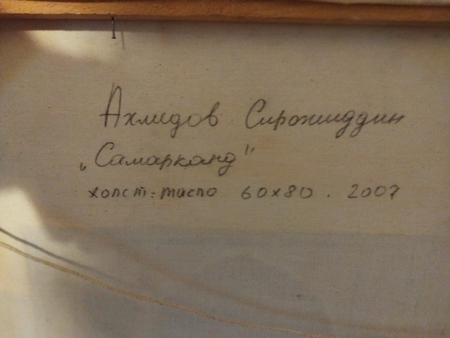 Ахмидов Сирожиддин
„Самарканд"
холст-масло 60x80. 2007